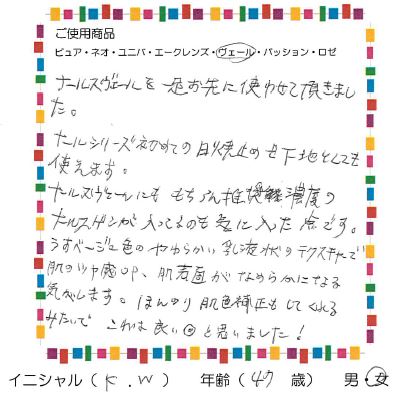 ご使用商品
ピュア・ネオ・ユニバ・エークレンズ・ヴェール・パッション・ロゼ
ナールスヴェールを一足お先に使わせて頂きまし
た。
ナールスシリーズ初めての日焼止め&下地としても
使えます。
ナールスヴェールにももちろん推奨濃度の
ナールスゲンが入ってるのも気に入った点です。
うすベージュ色のやわらかい乳液状のテクスチャーで
肌のツヤ感UP、肌表面がなめらかになる
気がします。ほんのり肌色補正もしてくれる
みたいで これは良い◎と思いました!
イニシャル(K.W) 年齢(47 歳) 男・女